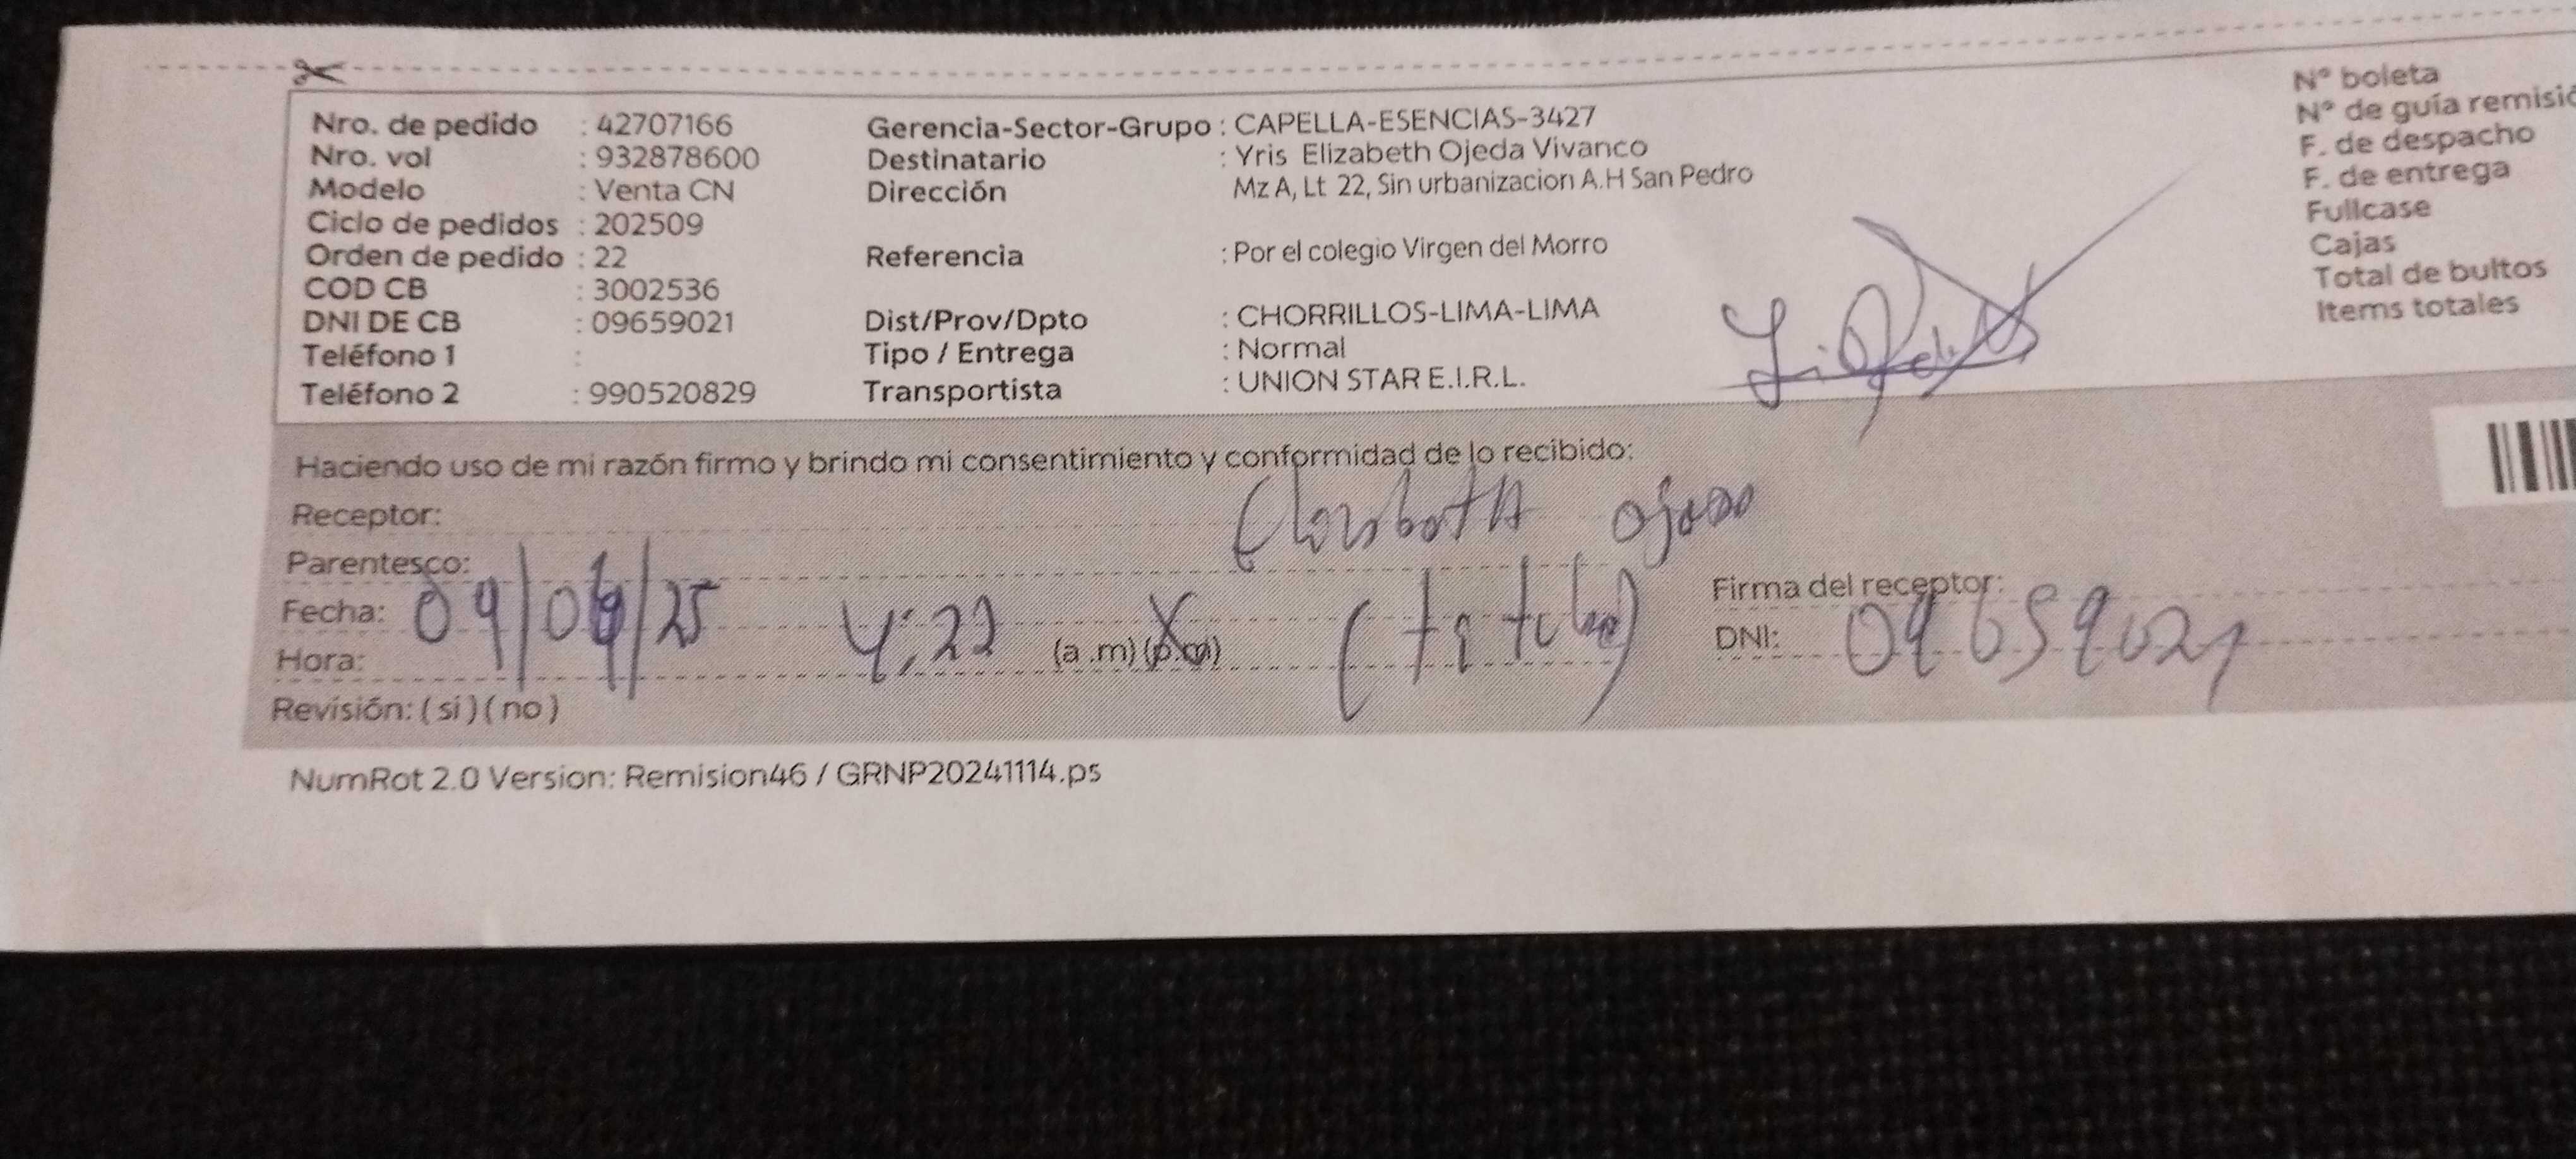 Nro. de pedido : 42707166
Nro. vol : 932878600
Modelo : Venta CN
Ciclo de pedidos : 202509
Orden de pedido : 22
COD CB : 3002536
DNI DE CB : 09659021
Teléfono 1 :
Teléfono 2 : 990520829
Gerencia-Sector-Grupo : CAPELLA-ESENCIAS-3427
Destinatario : Yris Elizabeth Ojeda Vivanco
Dirección Mz A, Lt 22, Sin urbanizacion A.H San Pedro
Referencia : Por el colegio Virgen del Morro
Dist/Prov/Dpto : CHORRILLOS-LIMA-LIMA
Tipo / Entrega : Normal
Transportista : UNION STAR E.I.R.L.
N° boleta
N° de guía remisió
F. de despacho
F. de entrega
Fullcase
Cajas
Total de bultos
Items totales
Haciendo uso de mi razón firmo y brindo mi consentimiento y conformidad de lo recibido:
Receptor: Elizabeth Ojeda
Parentesco: (titular)
Fecha: 09/06/25
Hora: 4:22 (a.m) (p.m)
Revisión: ( si ) ( no )
Firma del receptor:
DNI: 09659021
NumRot 2.0 Version: Remision46 / GRNP20241114.ps